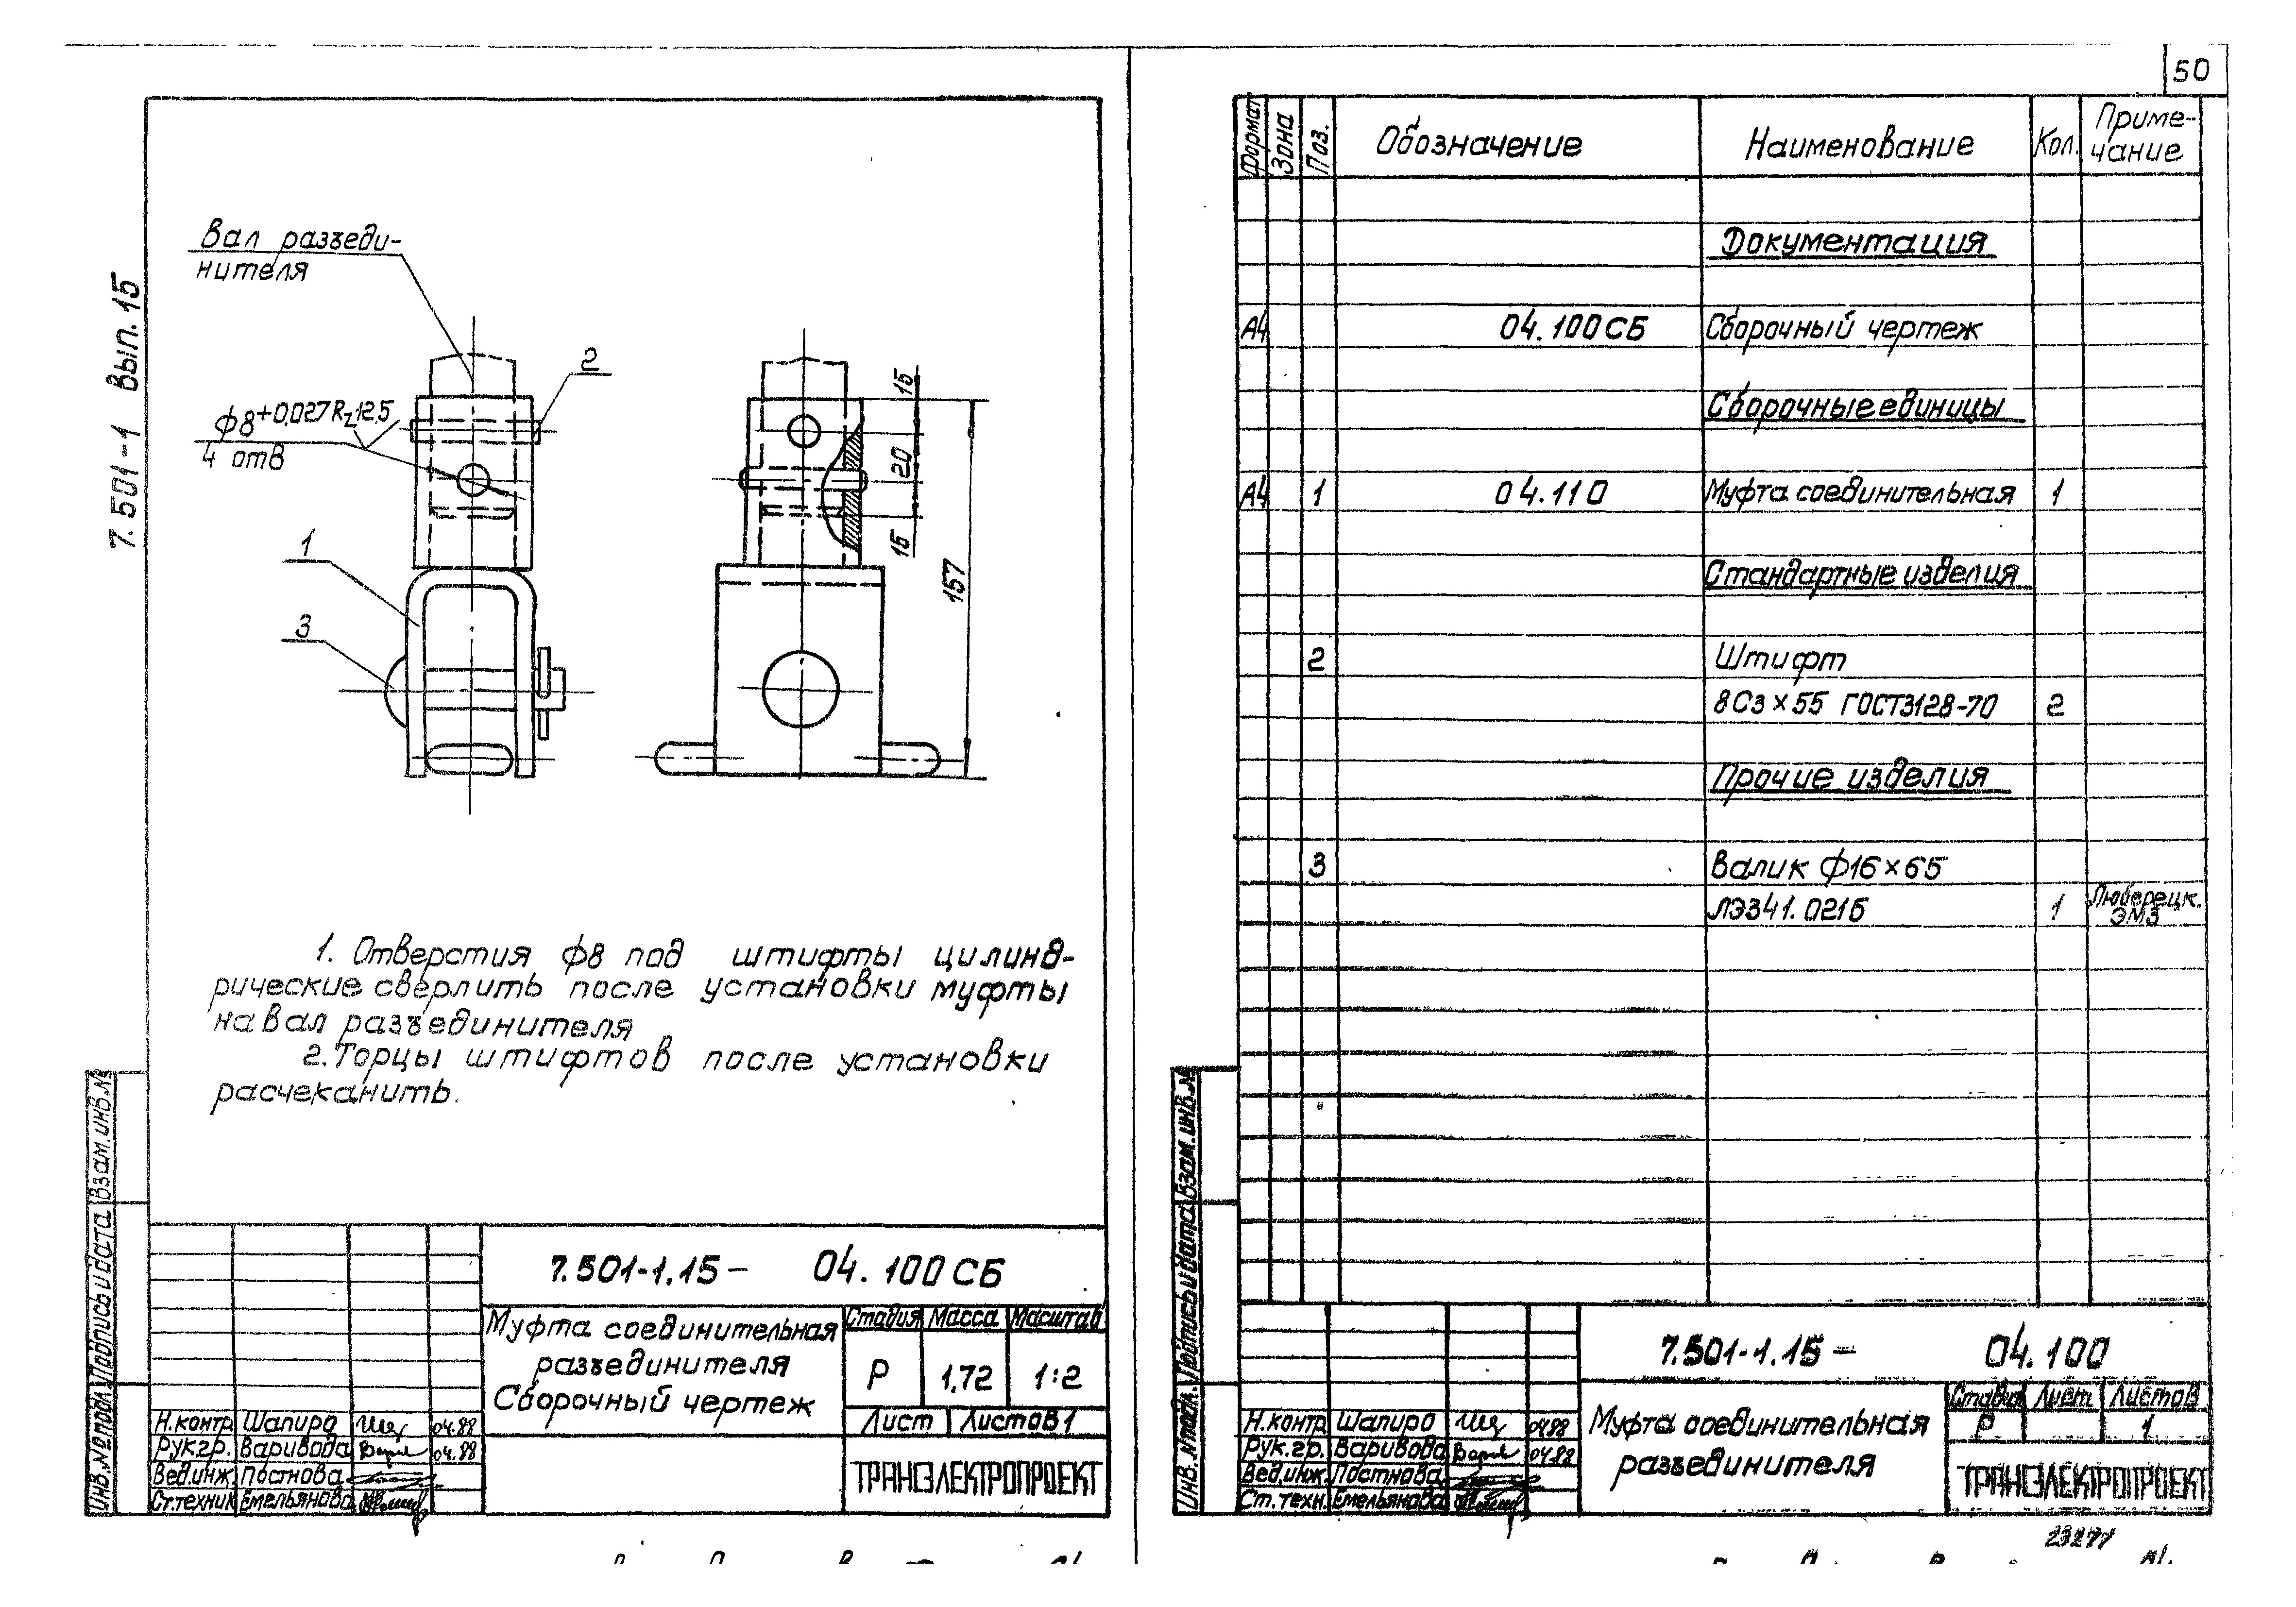 50
7.501-1 Вып. 15
Вал разъеди-
нителя
2
ф8+0,027 Rz12,5
4 отв
1
3
15
20
15
157
1. Отверстия ф8 под штифты цилинд-
рические сверлить после установки муфты
на вал разъединителя
2. Торцы штифтов после установки
расчеканить.
Инв.№подл. Подпись и дата Взам.инв.№
7.501-1.15- 04.100 СБ
Муфта соединительная
разъединителя
Сборочный чертеж
Стадия Масса Масштаб
Р 1,72 1:2
Лист Листов 1
ТРАНСЭЛЕКТРОПРОЕКТ
Н.контр. Шапиро 04.88
Рук.гр. Варивода 04.88
Вед.инж. Постнова
Ст.техник Емельянова
Формат Зона Поз. Обозначение Наименование Кол. Приме-
чание
Документация
А4 04.100СБ Сборочный чертеж
Сборочные единицы
А4 1 04.110 Муфта соединительная 1
Стандартные изделия
2 Штифт
8Сз×55 ГОСТ3128-70 2
Прочие изделия
3 Валик ф16×65
ЛЭ341.0215 1 Люберецк.
ЭМЗ
Инв.№подл. Подпись и дата Взам.инв.№
7.501-1.15- 04.100
Муфта соединительная
разъединителя
Стадия Лист Листов
Р 1
ТРАНСЭЛЕКТРОПРОЕКТ
Н.контр. Шапиро 04.88
Рук.гр. Варивода 04.88
Вед.инж. Постнова
Ст.техн. Емельянова
23277